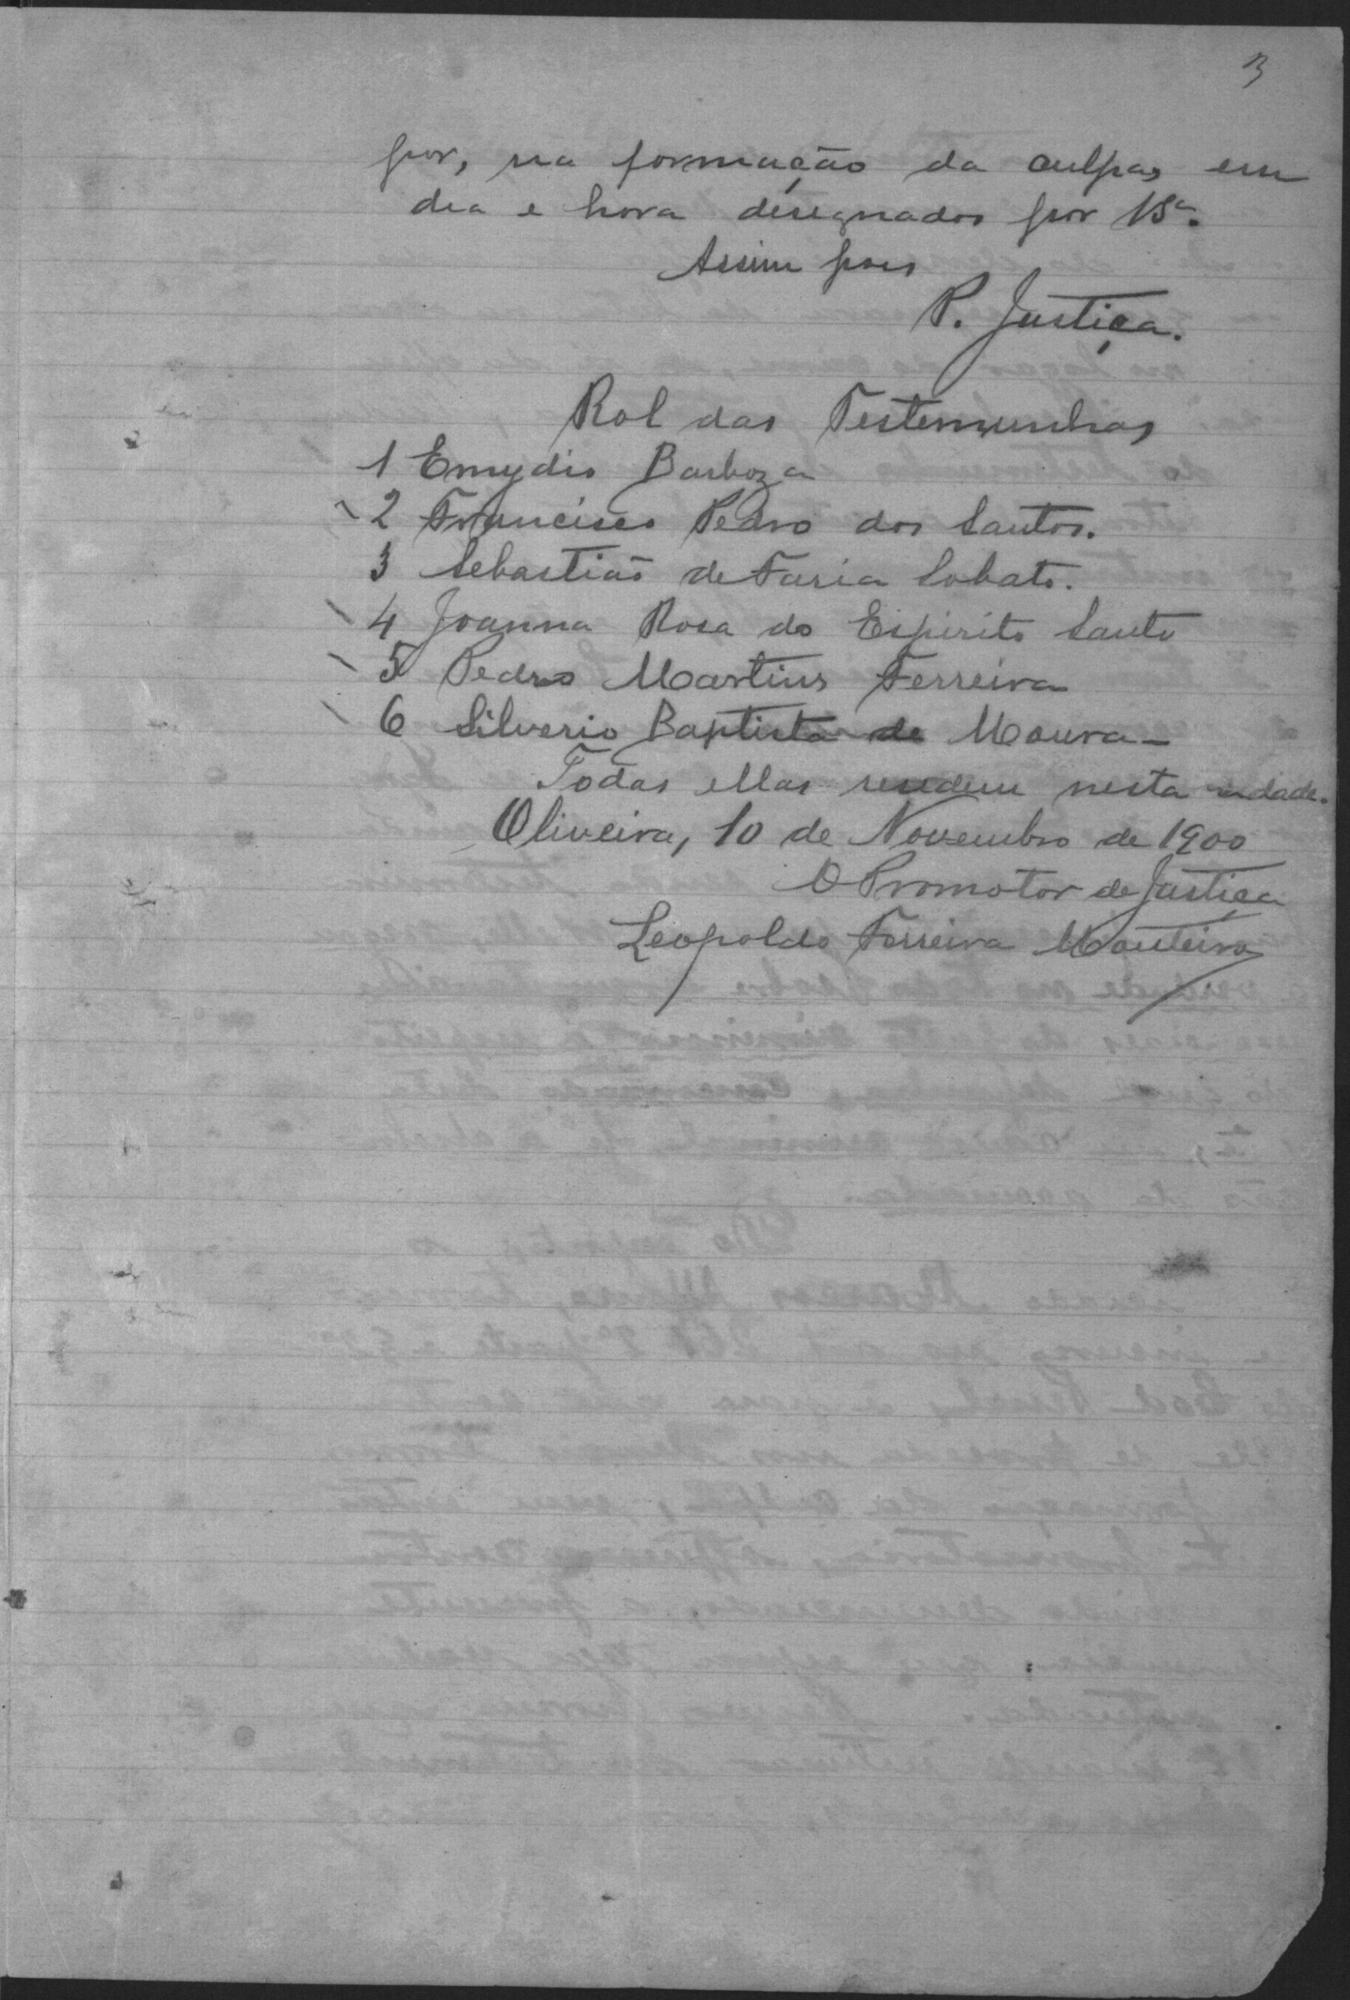 3
por, na formação da culpa, em
dia e hora designados por V Sª.
Assim pois
P. Justiça.
Rol das Testemunhas
1 Emydio Barboza
2 Francisco Pedro dos Santos.
3 Sebastião de Faria Lobato.
4 Joanna Rosa do Espirito Santo
5 Pedro Martins Ferreira
6 Silverio Baptista de Moura -
Todas ellas residem nesta cidade.
Oliveira, 10 de Novembro de 1900
O Promotor de Justiça
Leopoldo Ferreira Monteiro